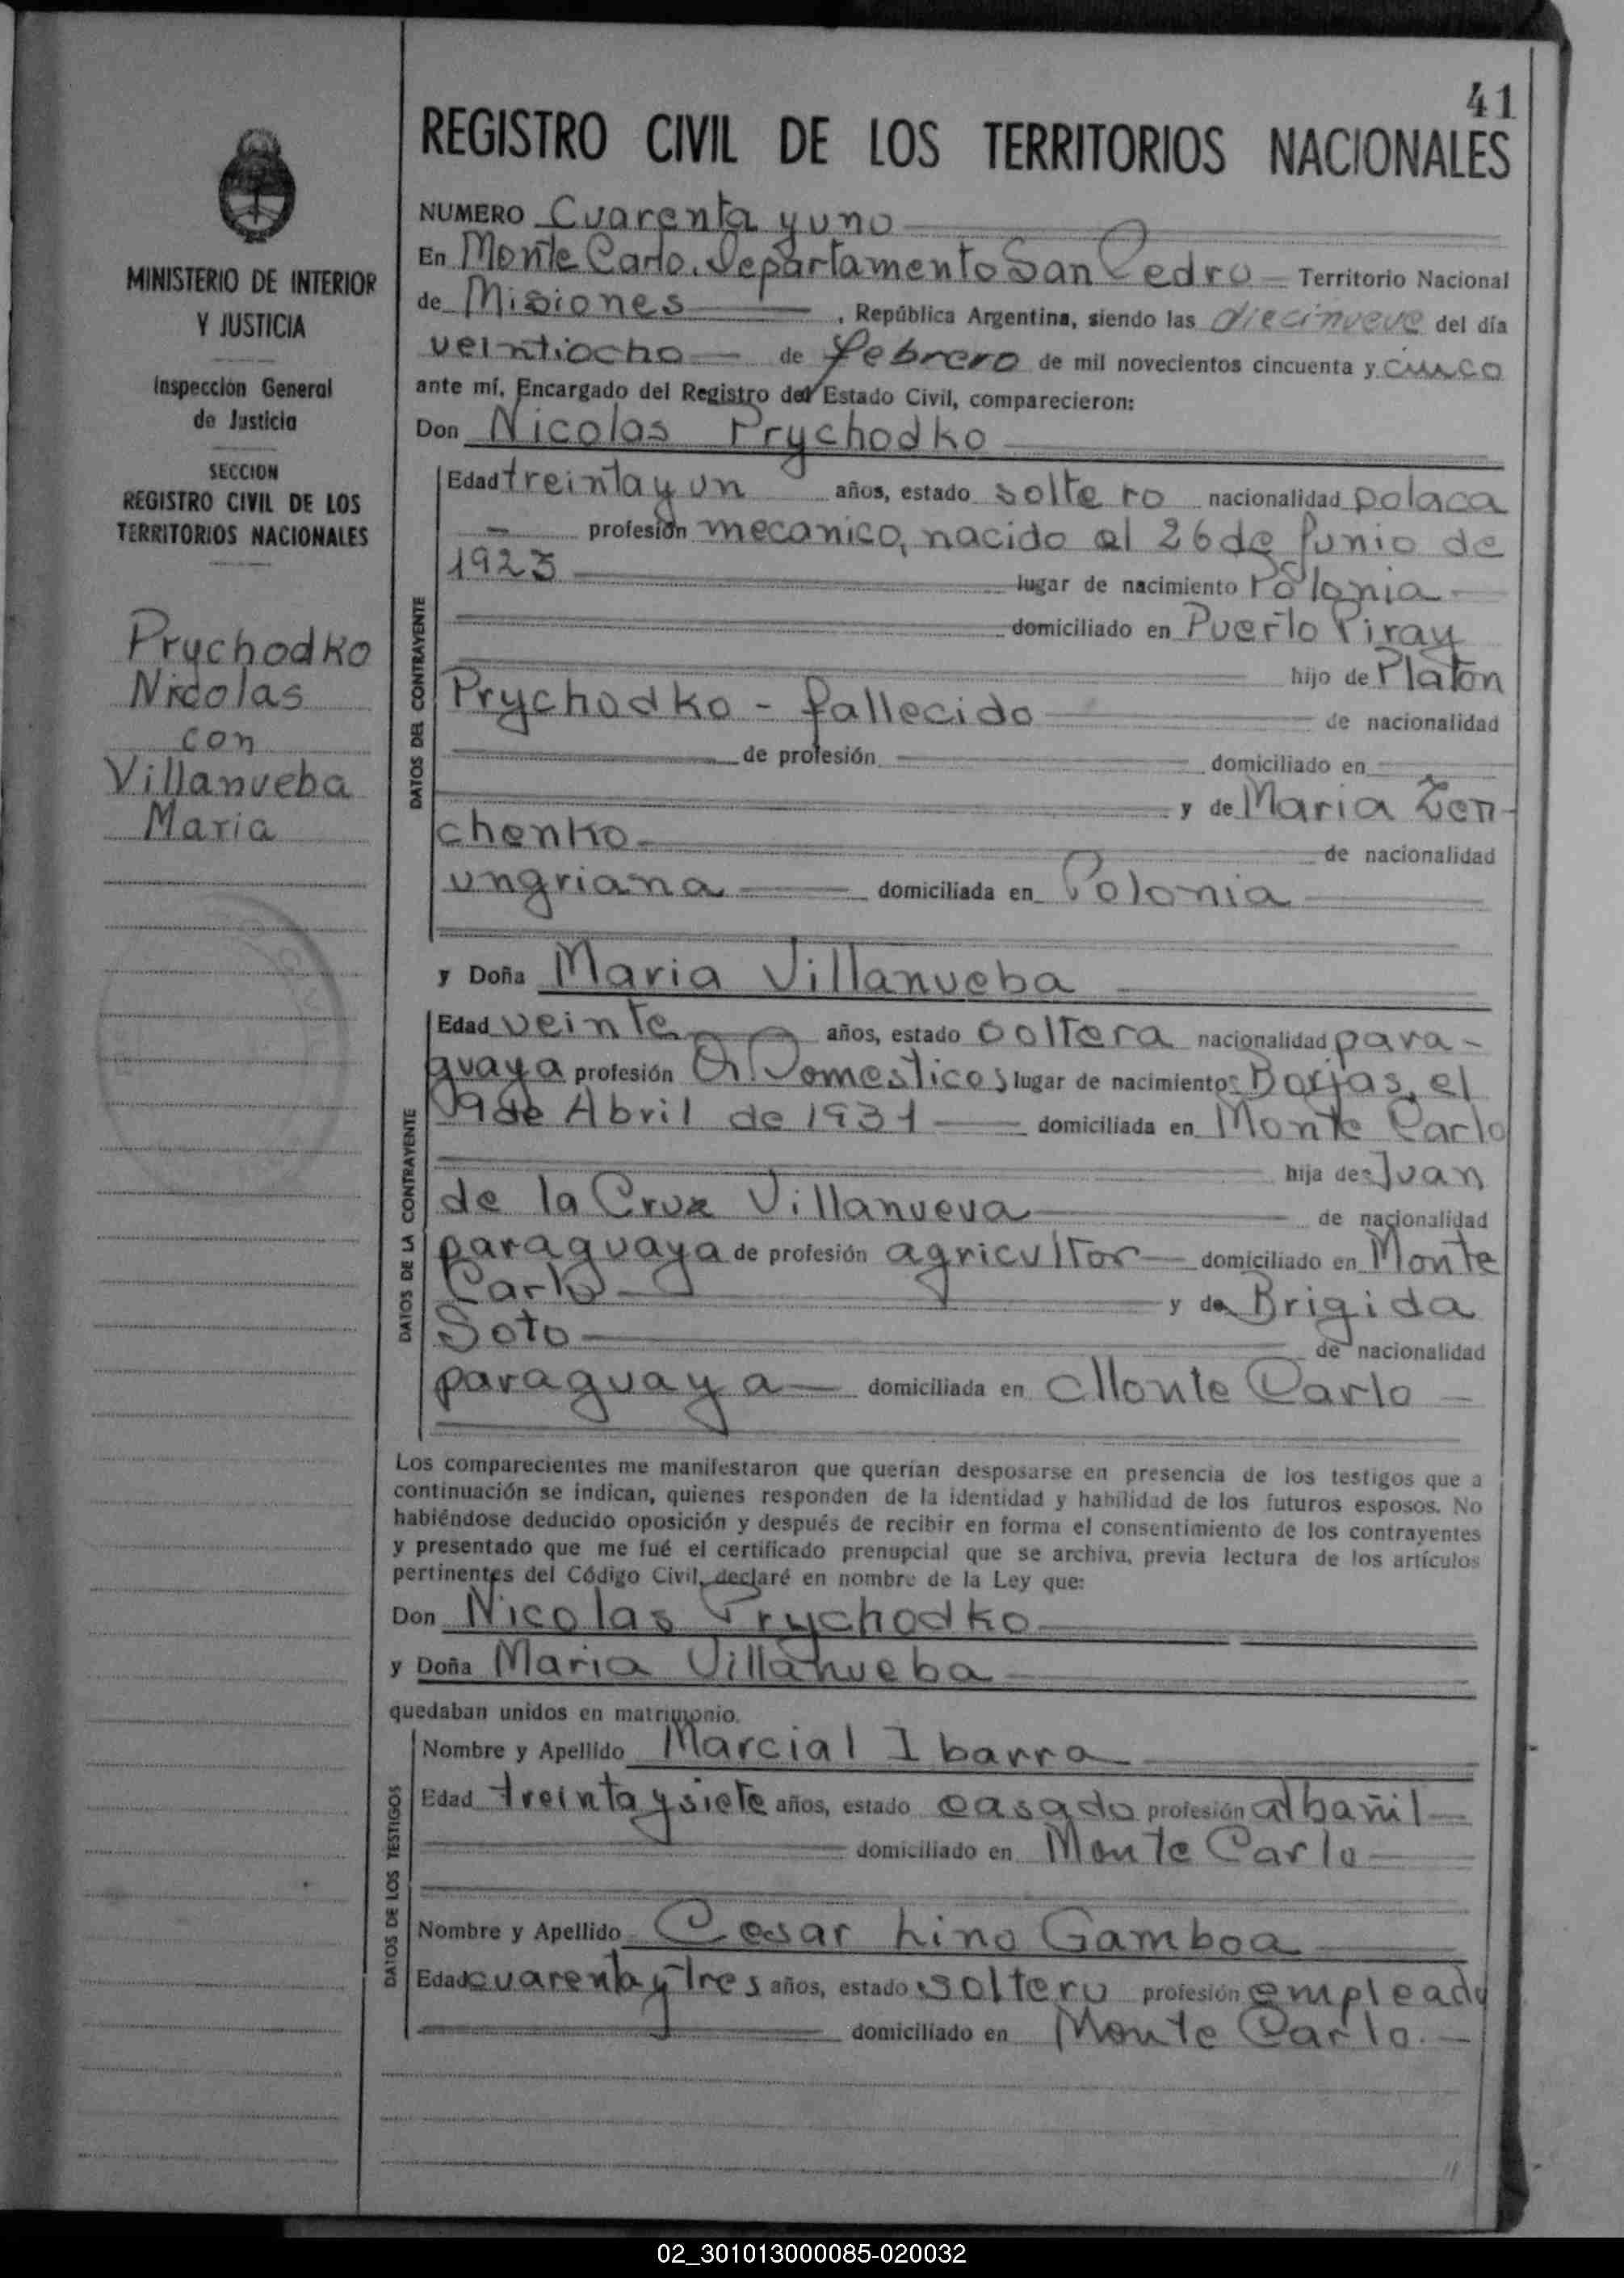 41
REGISTRO CIVIL DE LOS TERRITORIOS NACIONALES
MINISTERIO DE INTERIOR
Y JUSTICIA
Inspección General
de Justicia
SECCION
REGISTRO CIVIL DE LOS
TERRITORIOS NACIONALES
Prychodko
Nicolas
con
Villanueba
Maria
NUMERO Cuarenta y uno
En Monte Carlo. Departamento San Pedro Territorio Nacional
de Misiones, República Argentina, siendo las diecinueve del día
veintiocho de febrero de mil novecientos cincuenta y cinco
ante mí, Encargado del Registro del Estado Civil, comparecieron:
Don Nicolas Prychodko
DATOS DEL CONTRAYENTE
Edad treinta y un años, estado soltero nacionalidad polaca
- profesión mecanico, nacido el 26 de Junio de
1923 lugar de nacimiento Polonia
domiciliado en Puerto Piray
hijo de Platon
Prychodko - fallecido de nacionalidad
de profesión domiciliado en
y de Maria Zen-
chenko de nacionalidad
ungriana domiciliada en Polonia
y Doña Maria Villanueba
DATOS DE LA CONTRAYENTE
Edad veinte años, estado soltera nacionalidad para-
guaya profesión Q. Domesticos lugar de nacimiento Borjas, el
9 de Abril de 1931 domiciliada en Monte Carlo
hija de Juan
de la Cruz Villanueva de nacionalidad
paraguaya de profesión agricultor domiciliado en Monte
Carlo y de Brigida
Soto de nacionalidad
paraguaya domiciliada en Monte Carlo
Los comparecientes me manifestaron que querían desposarse en presencia de los testigos que a
continuación se indican, quienes responden de la identidad y habilidad de los futuros esposos. No
habiéndose deducido oposición y después de recibir en forma el consentimiento de los contrayentes
y presentado que me fué el certificado prenupcial que se archiva, previa lectura de los artículos
pertinentes del Código Civil, declaré en nombre de la Ley que:
Don Nicolas Prychodko
y Doña Maria Villanueba
quedaban unidos en matrimonio.
DATOS DE LOS TESTIGOS
Nombre y Apellido Marcial Ibarra
Edad treinta y siete años, estado casado profesión albañil
domiciliado en Monte Carlo
Nombre y Apellido Cesar Lino Gamboa
Edad cuarenta y tres años, estado soltero profesión empleado
domiciliado en Monte Carlo.-
02_301013000085-020032